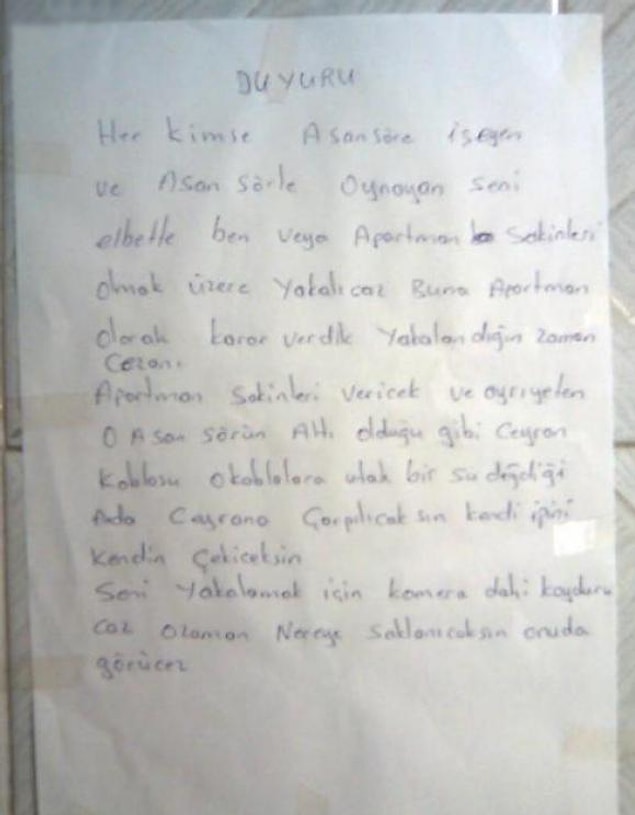 DUYURU
Her kimse Asansöre işeyen
ve Asan sörle Oynayan seni
elbette ben veya Apartman Sakinleri
olmak üzere Yakalıcaz Buna Apartman
olarak karar verdik Yakalandığın zaman
Cezanı
Apartman Sakinleri vericek ve ayrıyeten
O Asan sörün Altı olduğu gibi Ceyran
Kablosu Okablolara ufak bir su değdiği
Anda Cayrana Çarpılıcak sın kendi ipini
kendin Çekiceksin
Seni Yakalamak için kamera dahi koyduru
caz Ozaman Nereye Saklanıcaksın onuda
görücez